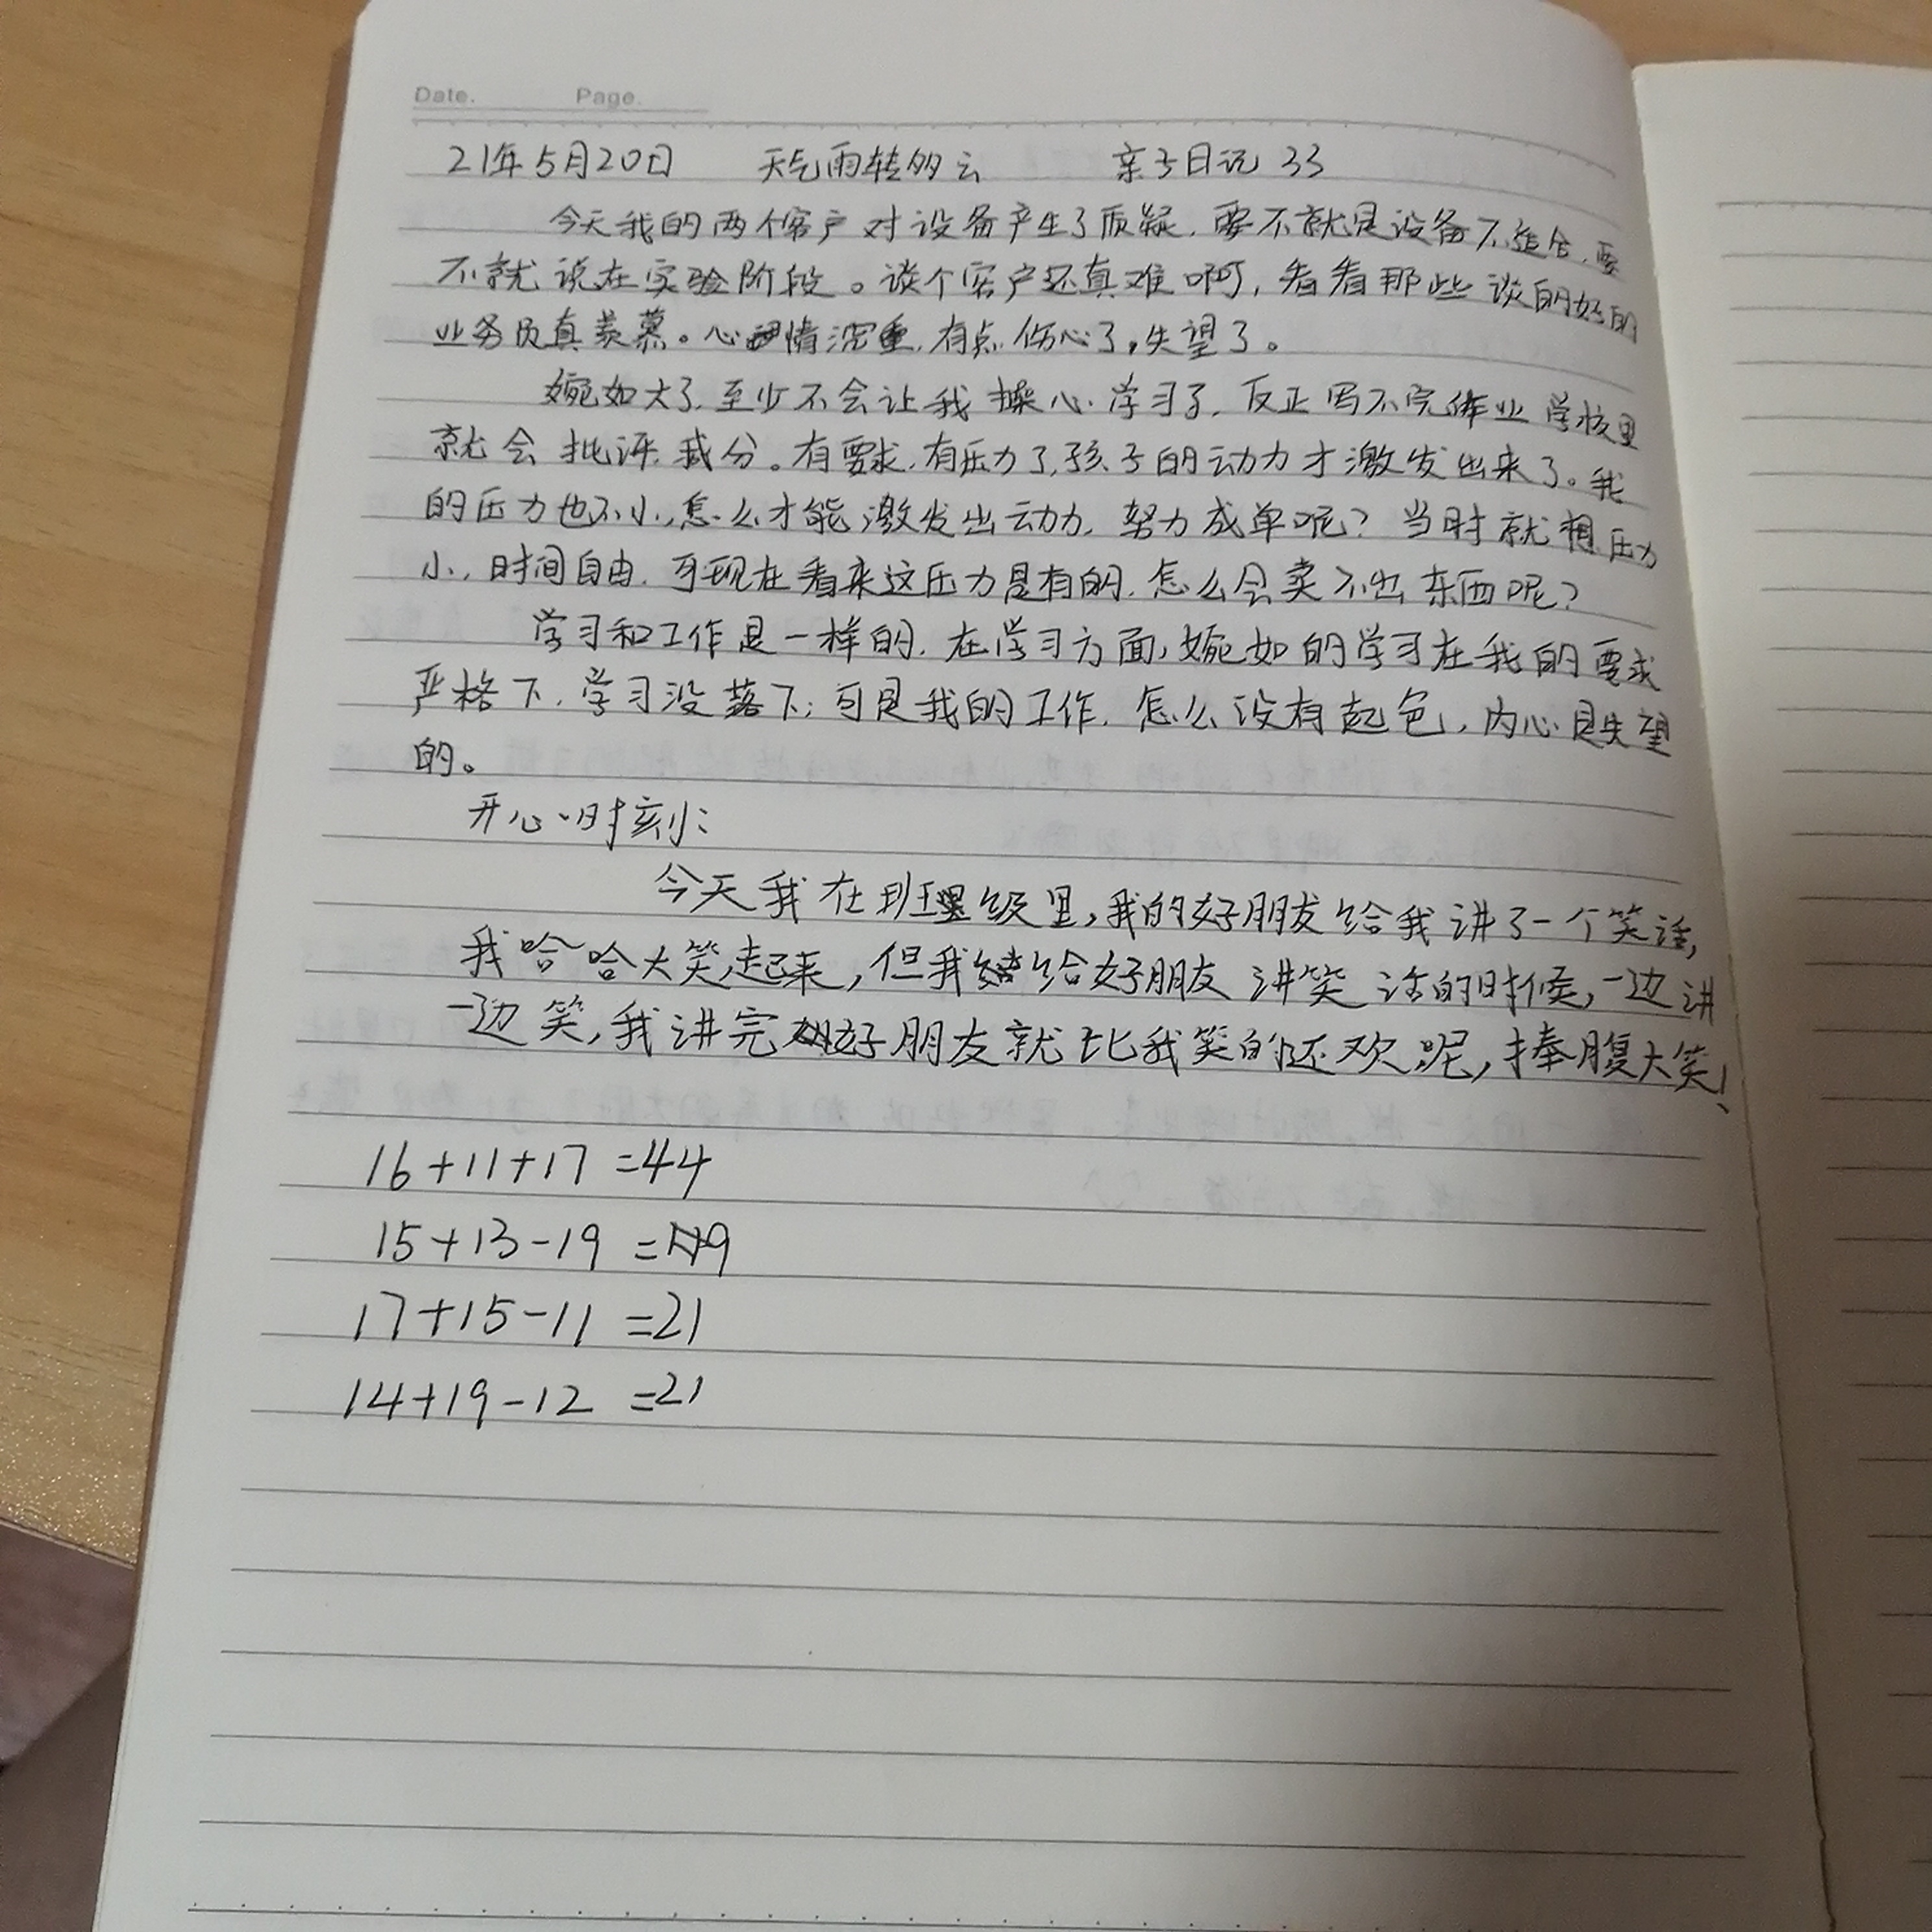 Date. Page.
21年5月20日 天气雨转多云 亲子日记 33
今天我的两个客户对设备产生了质疑,要不就是设备不适合,要
不就说在实验阶段。谈个客户还真难啊,看看那些谈的好的
业务员真羡慕。心情沉重,有点伤心了,失望了。
婉如大了,至少不会让我操心学习了,反正写不完作业学校里
就会批评,减分。有要求,有压力了,孩子的动力才激发出来了。我
的压力也不小,怎么才能激发出动力,努力成单呢?当时就想压力
小,时间自由,可现在看来这压力是有的,怎么会卖不出东西呢?
学习和工作是一样的,在学习方面,婉如的学习在我的要求
严格下,学习没落下;可是我的工作,怎么没有起色,内心是失望
的。
开心时刻:
今天我在班级里,我的好朋友给我讲了一个笑话,
我哈哈大笑起来,但我给好朋友讲笑话的时候,一边讲
一边笑,我讲完好朋友就比我笑的还欢呢,捧腹大笑!
16+11+17=44
15+13-19=9
17+15-11=21
14+19-12=21